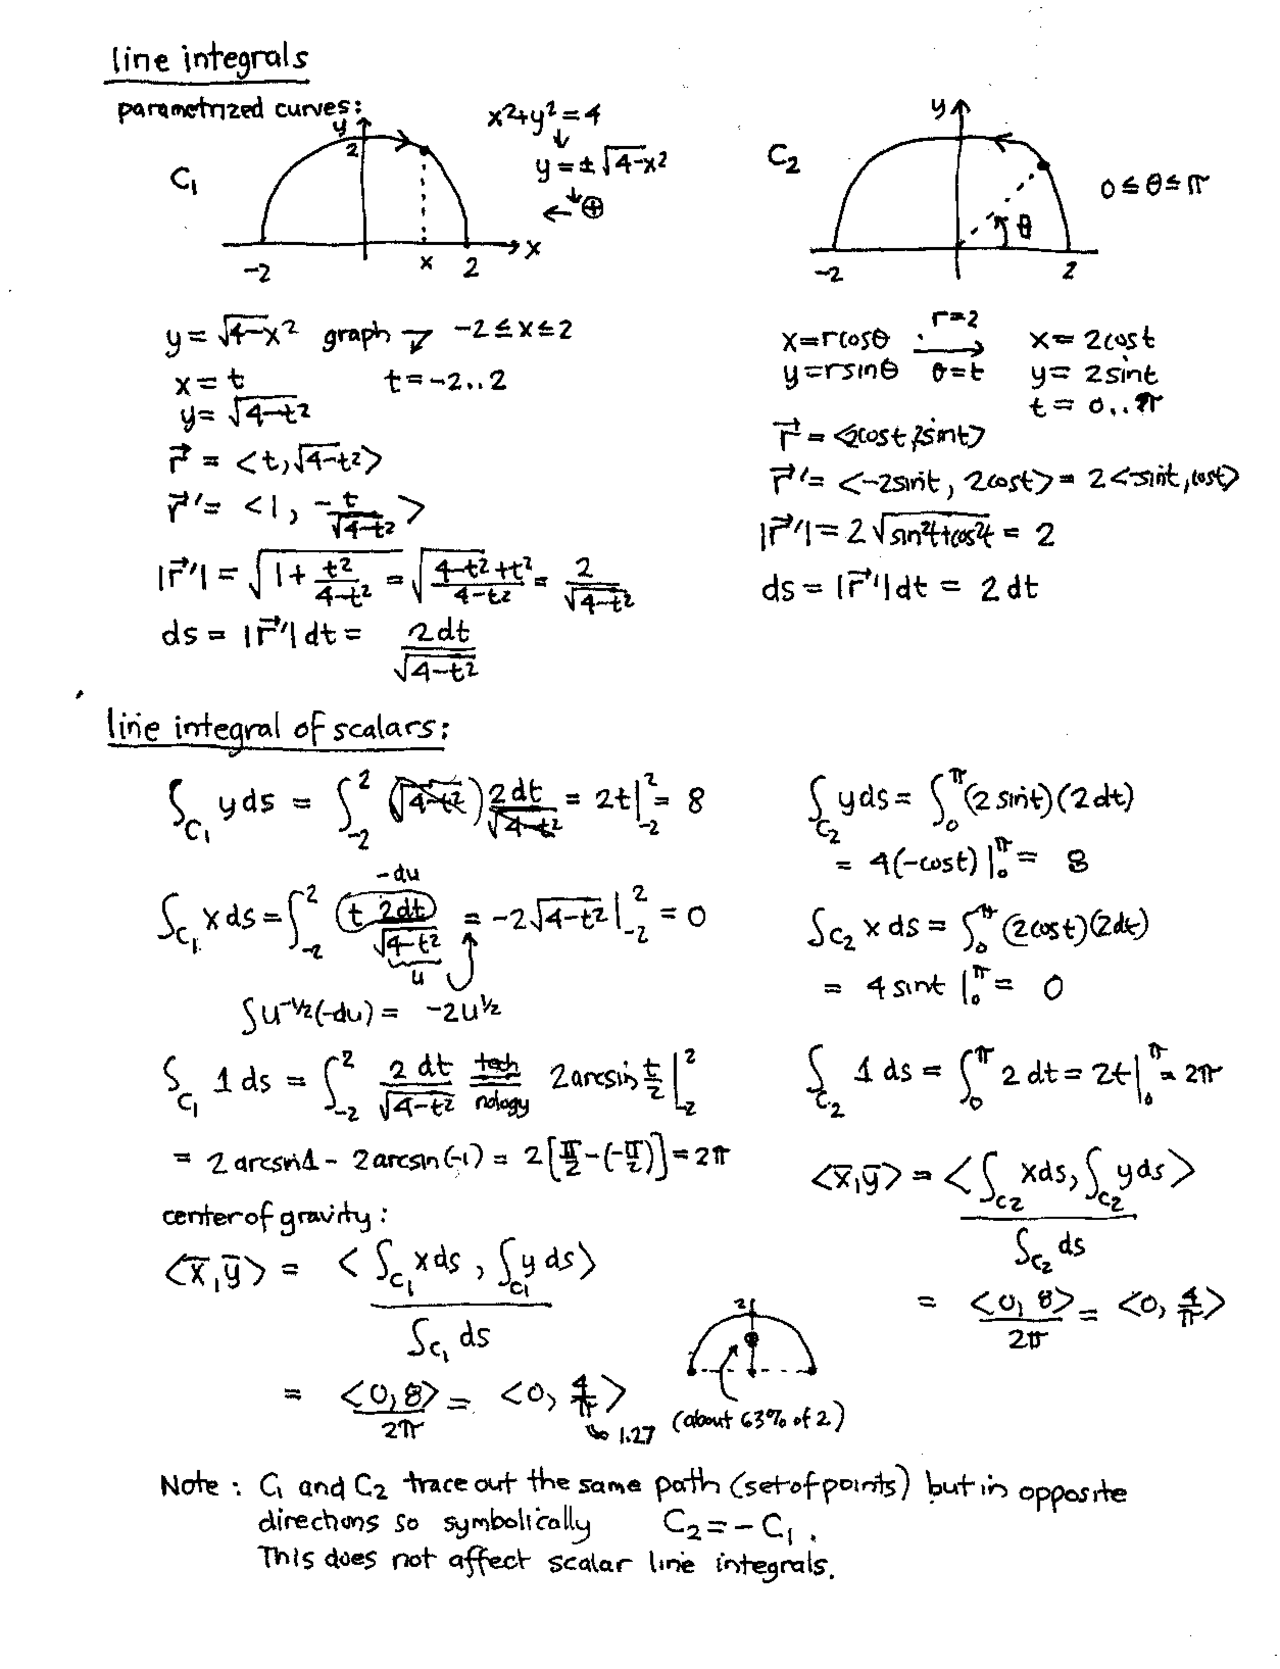 line integrals
parametrized curves:
C₁
y
2
-2
x
2
x
x²+y²=4
↓
y=±√(4-x²)
←↓⊕
y=√(4-x²) graph → -2≤x≤2
x=t t=-2..2
y=√(4-t²)
r⃗ = <t,√(4-t²)>
r⃗'= <1, -t/√(4-t²)>
|r⃗'| = √(1+t²/(4-t²)) = √((4-t²+t²)/(4-t²)) = 2/√(4-t²)
ds = |r⃗'|dt = 2dt/√(4-t²)
C₂
y
θ
-2
2
0≤θ≤π
x=rcosθ r=2 → x=2cost
y=rsinθ θ=t y=2sint
t=0..π
r⃗ = <2cost,2sint>
r⃗'= <-2sint, 2cost> = 2<-sint,cost>
|r⃗'| = 2√(sin²t+cos²t) = 2
ds = |r⃗'|dt = 2dt
line integral of scalars:
∫_C₁ yds = ∫_-2^2 (√(4-t²)) 2dt/√(4-t²) = 2t|_-2^2 = 8
-du
∫_C₁ xds = ∫_-2^2 t 2dt/√(4-t²) = -2√(4-t²)|_-2^2 = 0
u
∫u^-1/2(-du) = -2u^1/2
∫_C₁ 1ds = ∫_-2^2 2dt/√(4-t²) = technology 2arcsin t/2|_-2^2
= 2arcsin1 - 2arcsin(-1) = 2[π/2-(-π/2)] = 2π
center of gravity:
<x̄,ȳ> = <∫_C₁ xds, ∫_C₁ yds> / ∫_C₁ ds
= <0,8>/2π = <0, 4/π>
≈ 1.27
2
(about 63% of 2)
∫_C₂ yds = ∫_0^π (2sint)(2dt)
= 4(-cost)|_0^π = 8
∫_C₂ xds = ∫_0^π (2cost)(2dt)
= 4sint|_0^π = 0
∫_C₂ 1ds = ∫_0^π 2dt = 2t|_0^π = 2π
<x̄,ȳ> = <∫_C₂ xds, ∫_C₂ yds> / ∫_C₂ ds
= <0,8>/2π = <0, 4/π>
Note: C₁ and C₂ trace out the same path (set of points) but in opposite
directions so symbolically C₂=-C₁.
This does not affect scalar line integrals.